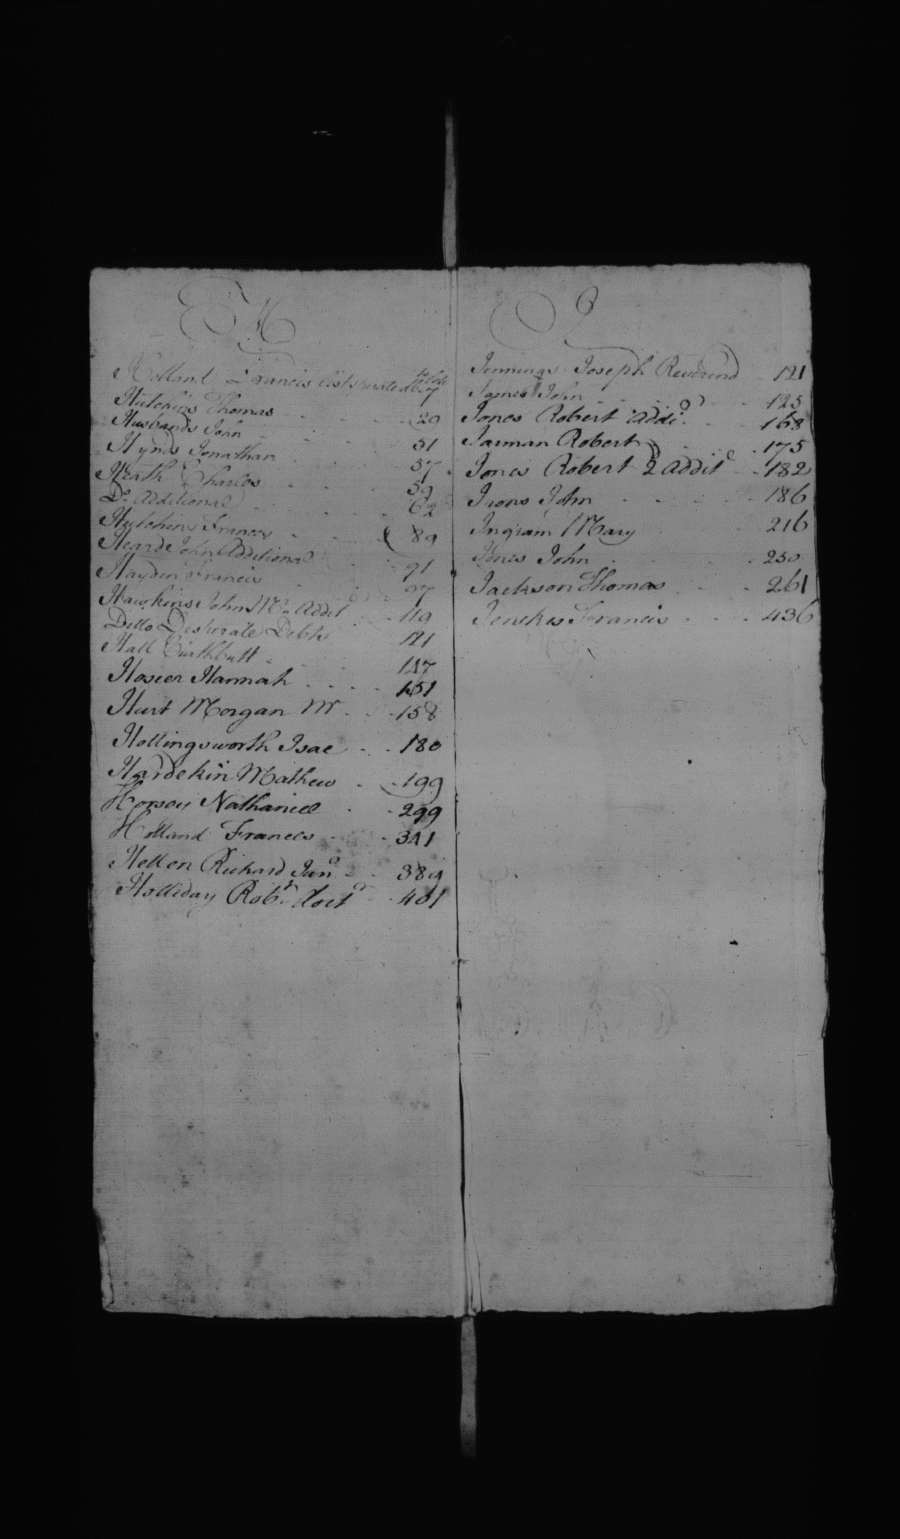 H
Holland Francis list sperate debts 7
Hutchins Thomas 29
Husbands John 51
Hynds Jonathan 57
Heath Charles 59
Do. additional 62
Hutchins Frances 89
Heard John Additional 91
Hayden Francis 97
Hawkins John Mr. Addit 119
Ditto Desperate Debts 121
Hall Cuthbutt 147
Hosier Hannah 151
Hurt Morgan Mr 158
Hollingsworth Isac 180
Hardekin Mathew 199
Horsey Nathaniel 299
Holland Frances 341
HelLen Richard Junr 384
Holliday Robt. doctr 401
J
Jennings Joseph Reverend 121
James John 125
Jones Robert addl. 168
Jarman Robert 175
Jones Robert 2 addil 182
Irons John 186
Ingram Mary 216
Jones John 250
Jackson Thomas 261
Jenckes Francis 436